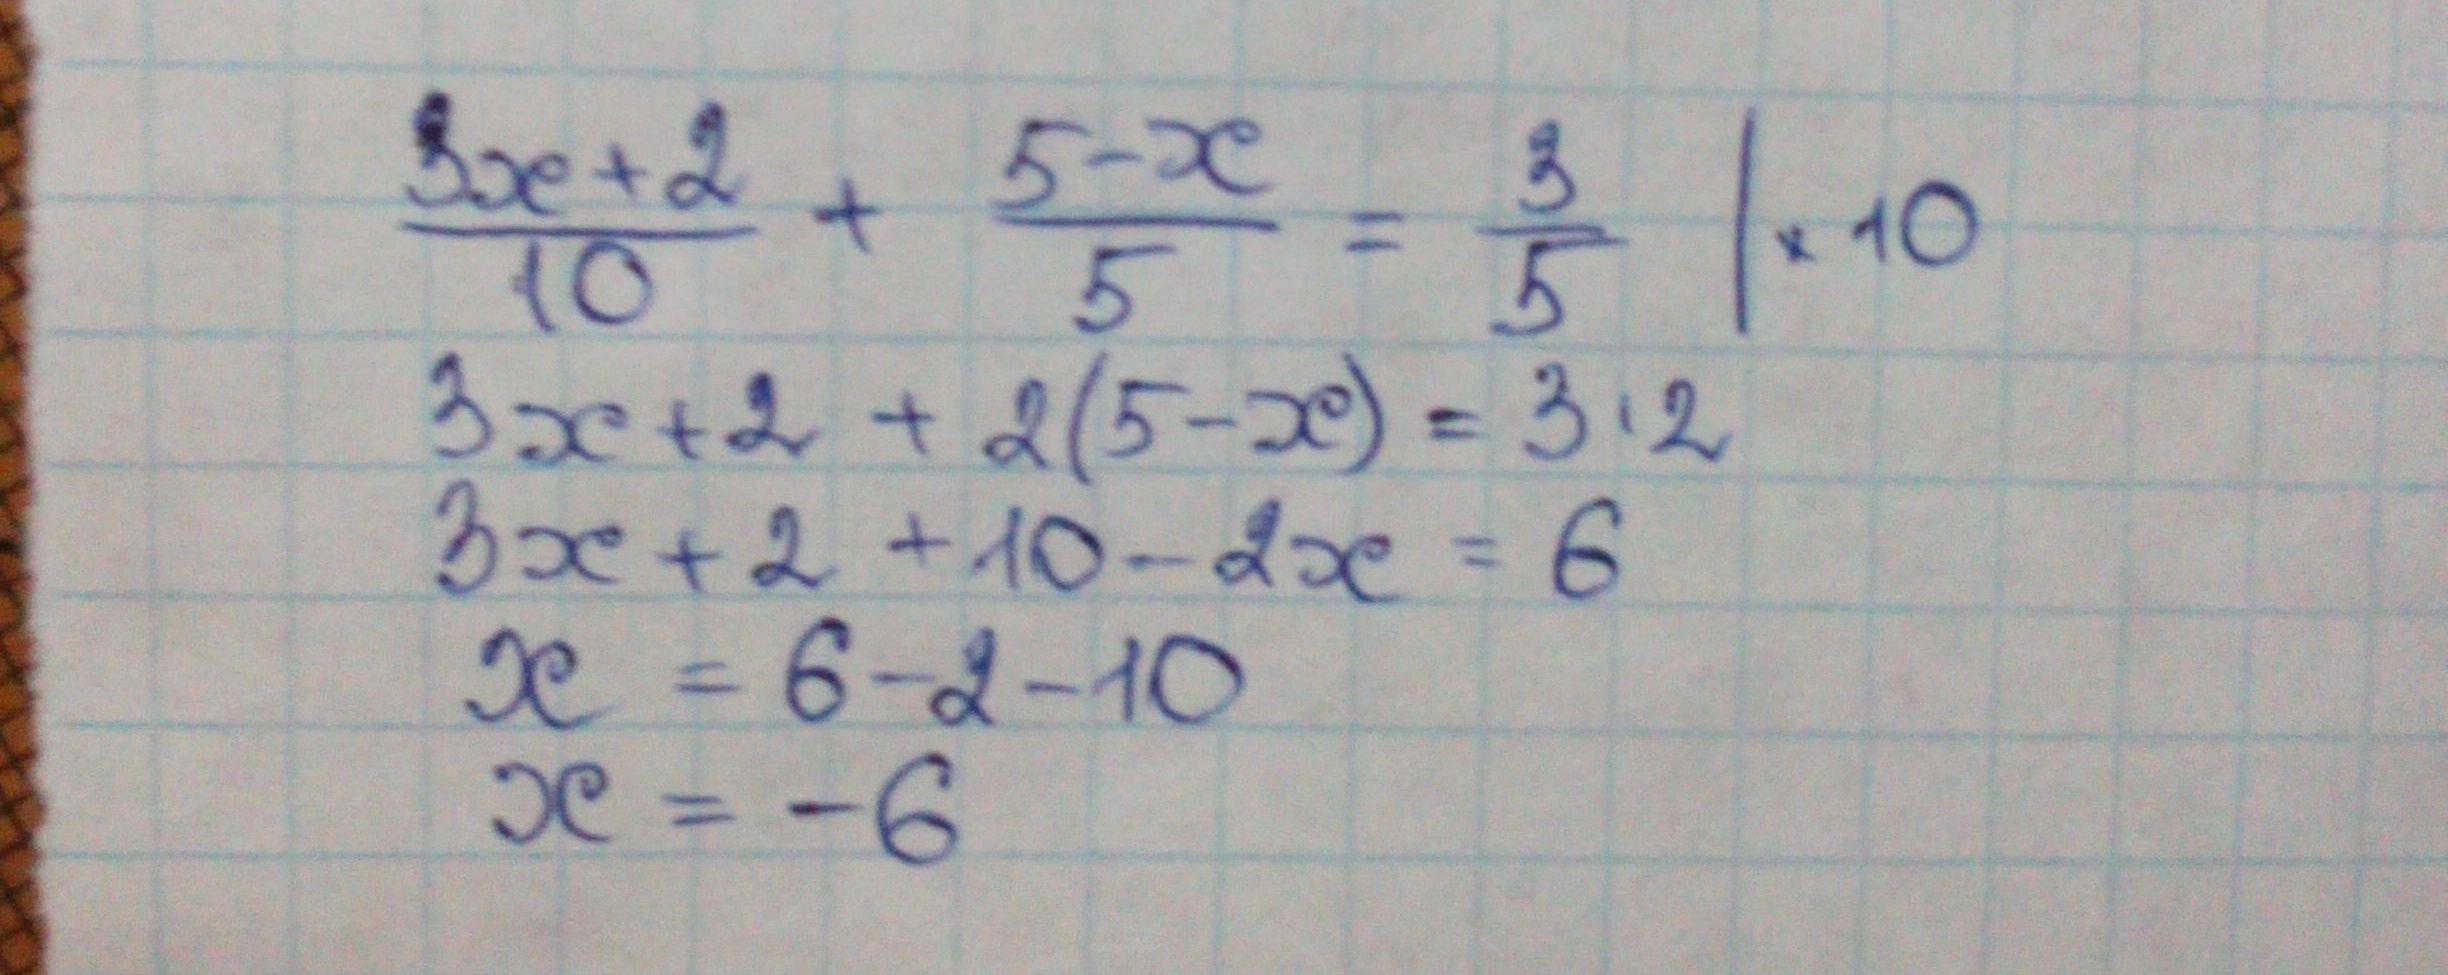 (3x+2)/10 + (5-x)/5 = 3/5 | × 10
3x+2 + 2(5-x) = 3·2
3x+2 +10-2x = 6
x = 6-2-10
x = -6